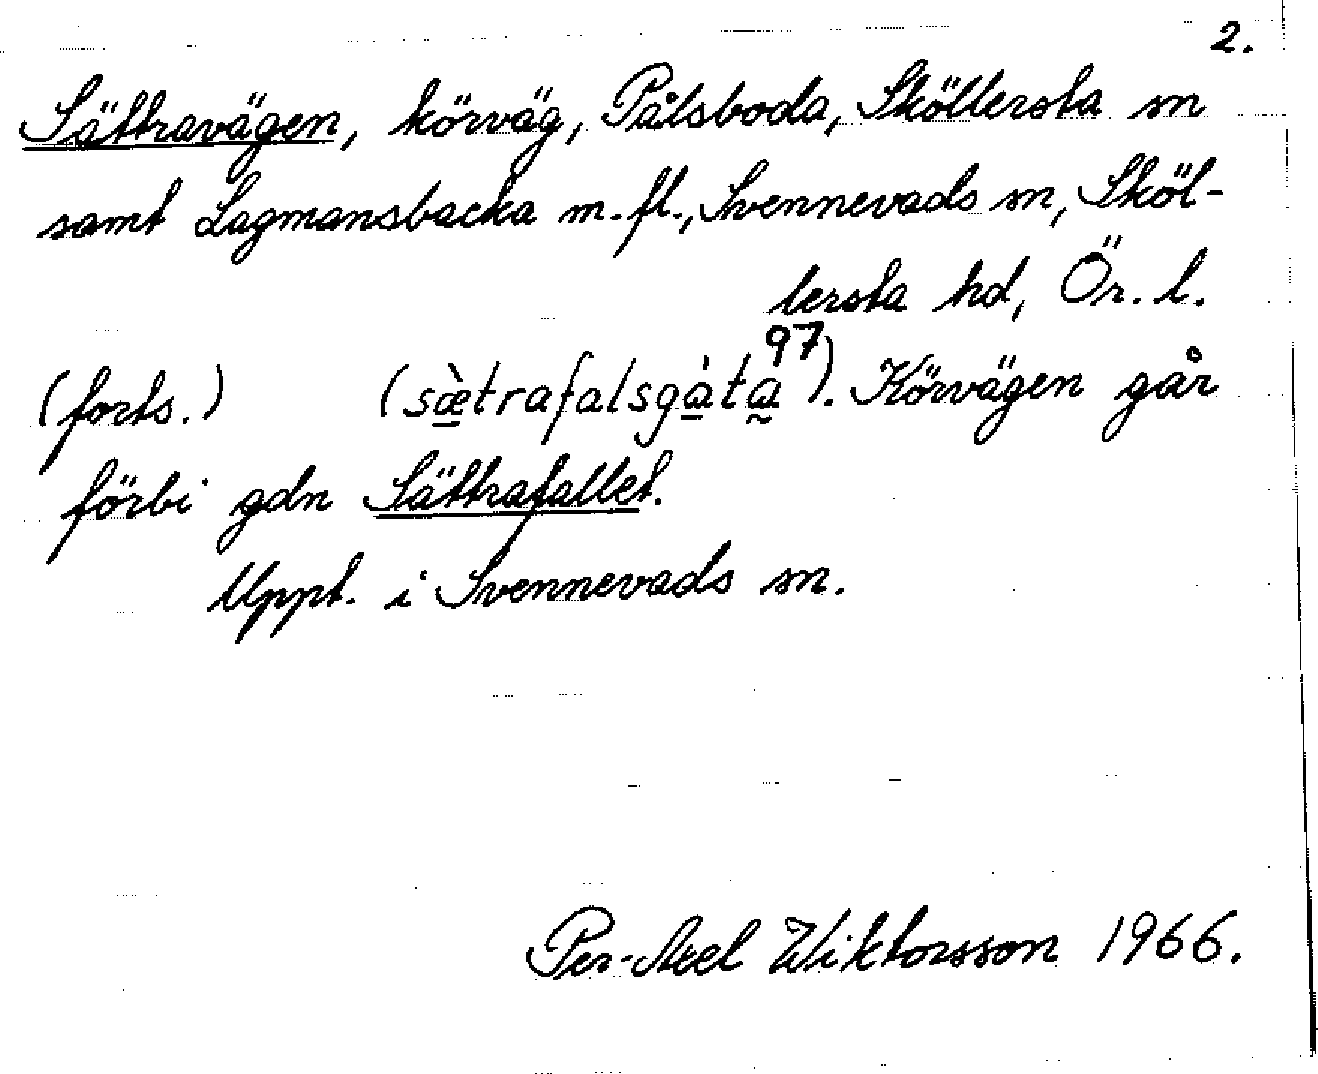 2.
Sättravägen, körväg, Pålsboda, Sköllersta sn
samt Lagmansbacka m.fl., Svennevads sn, Sköl-
lersta hd, Ör. l.
97
(forts.) (sæ̀trafalsgàta). Körvägen går
förbi gdn Sättrafallet.
Uppt. i Svennevads sn.
Per-Axel Wiktorsson 1966.